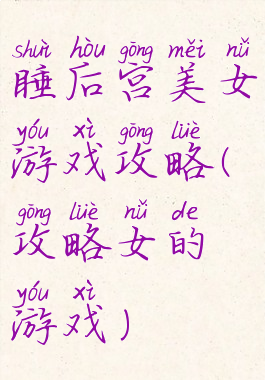 shuì hòu gōng měi nǚ
睡后宫美女
yóu xì gōng lüè
游戏攻略(
gōng lüè nǚ de
攻略女的
yóu xì
游戏)